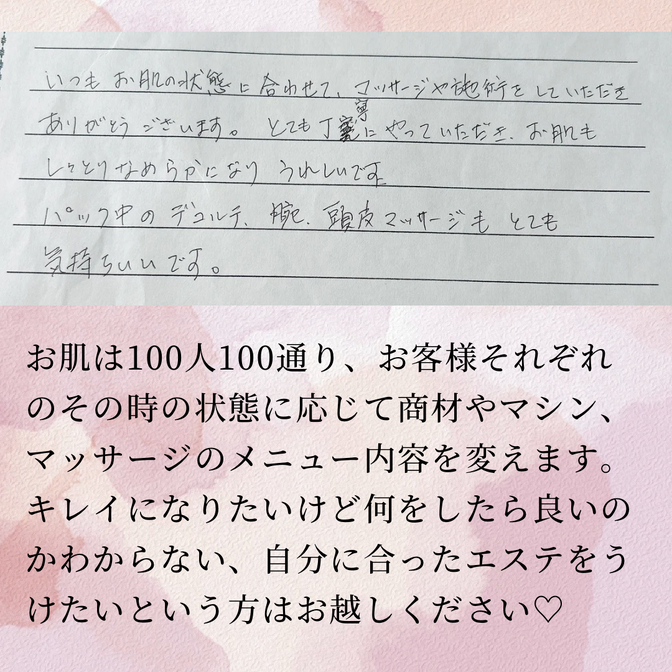 いつも お肌の状態に合わせて、マッサージや施術をしていただき
ありがとうございます。 とても丁寧にやっていただき、お肌も
しっとりなめらかになり うれしいです
パック中の デコルテ、腕、頭皮マッサージも とても
気持ちいいです。
お肌は100人100通り、お客様それぞれ
のその時の状態に応じて商材やマシン、
マッサージのメニュー内容を変えます。
キレイになりたいけど何をしたら良いの
かわからない、自分に合ったエステをう
けたいという方はお越しください♡